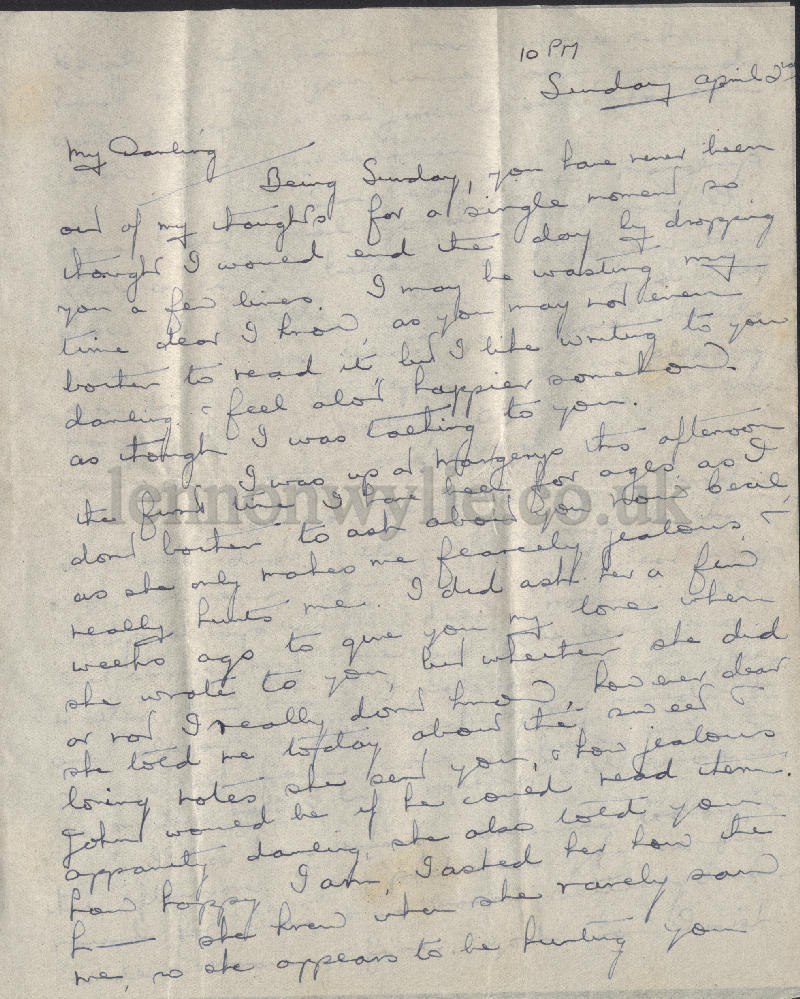 10 PM
Sunday April 2nd
My Darling
Being Sunday, you have never been
out of my thoughts for a single moment so
thought I would end the day by dropping
you a few lines. I may be wasting my
time dear I know, as you may not even
bother to read it but I like writing to you
darling & feel alot happier somehow.
as though I was talking to you.
I was up at Margerys this afternoon
the first time I have been for ages as I
dont bother to ask about you now Cecil,
as she only makes me fearcely jealous, &
really hurts me. I did ask her a few
weeks ago to give you my love when
she wrote to you, but whether she did
or not I really don't know, however dear
she told me today about the sweet &
loving notes she sent you, & how jealous
John would be if he could read them.
apparity darling, she also told you
how happy I am, I asked her how the
h— she knew when she rarely saw
me, so she appears to be hurting you
lennonwylie.co.uk